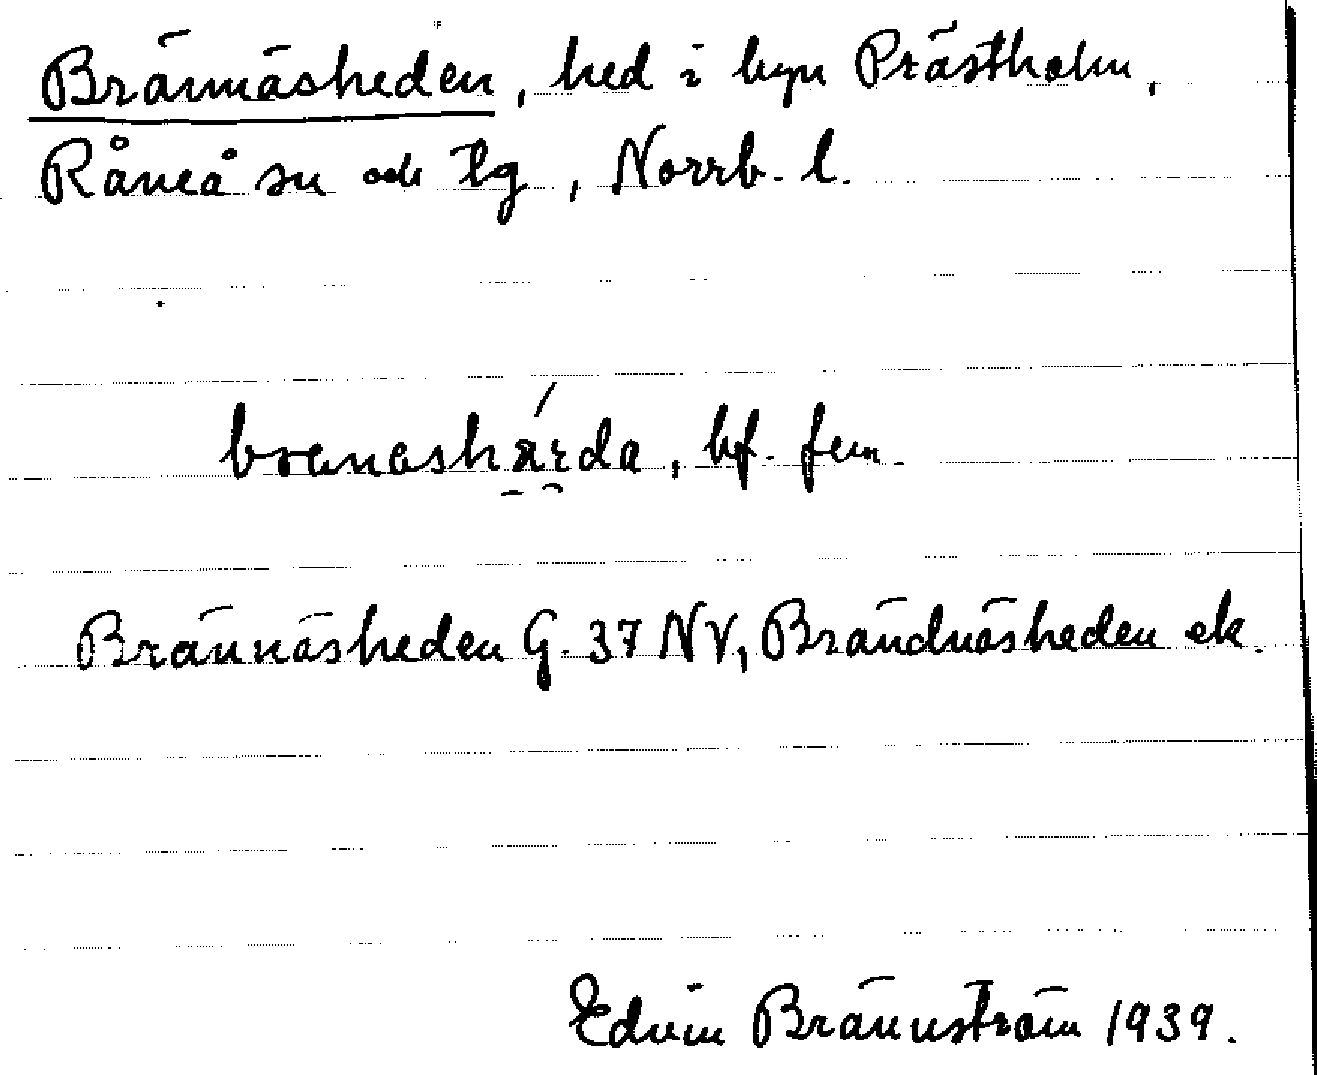 Brännäsheden, hed i byn Prästholm,
Råneå sn och tg, Norrb. l.
branashärda, bf. fem.
Brännäsheden G. 37 NV, Brändnäsheden ek.
Edvin Brännström 1939.